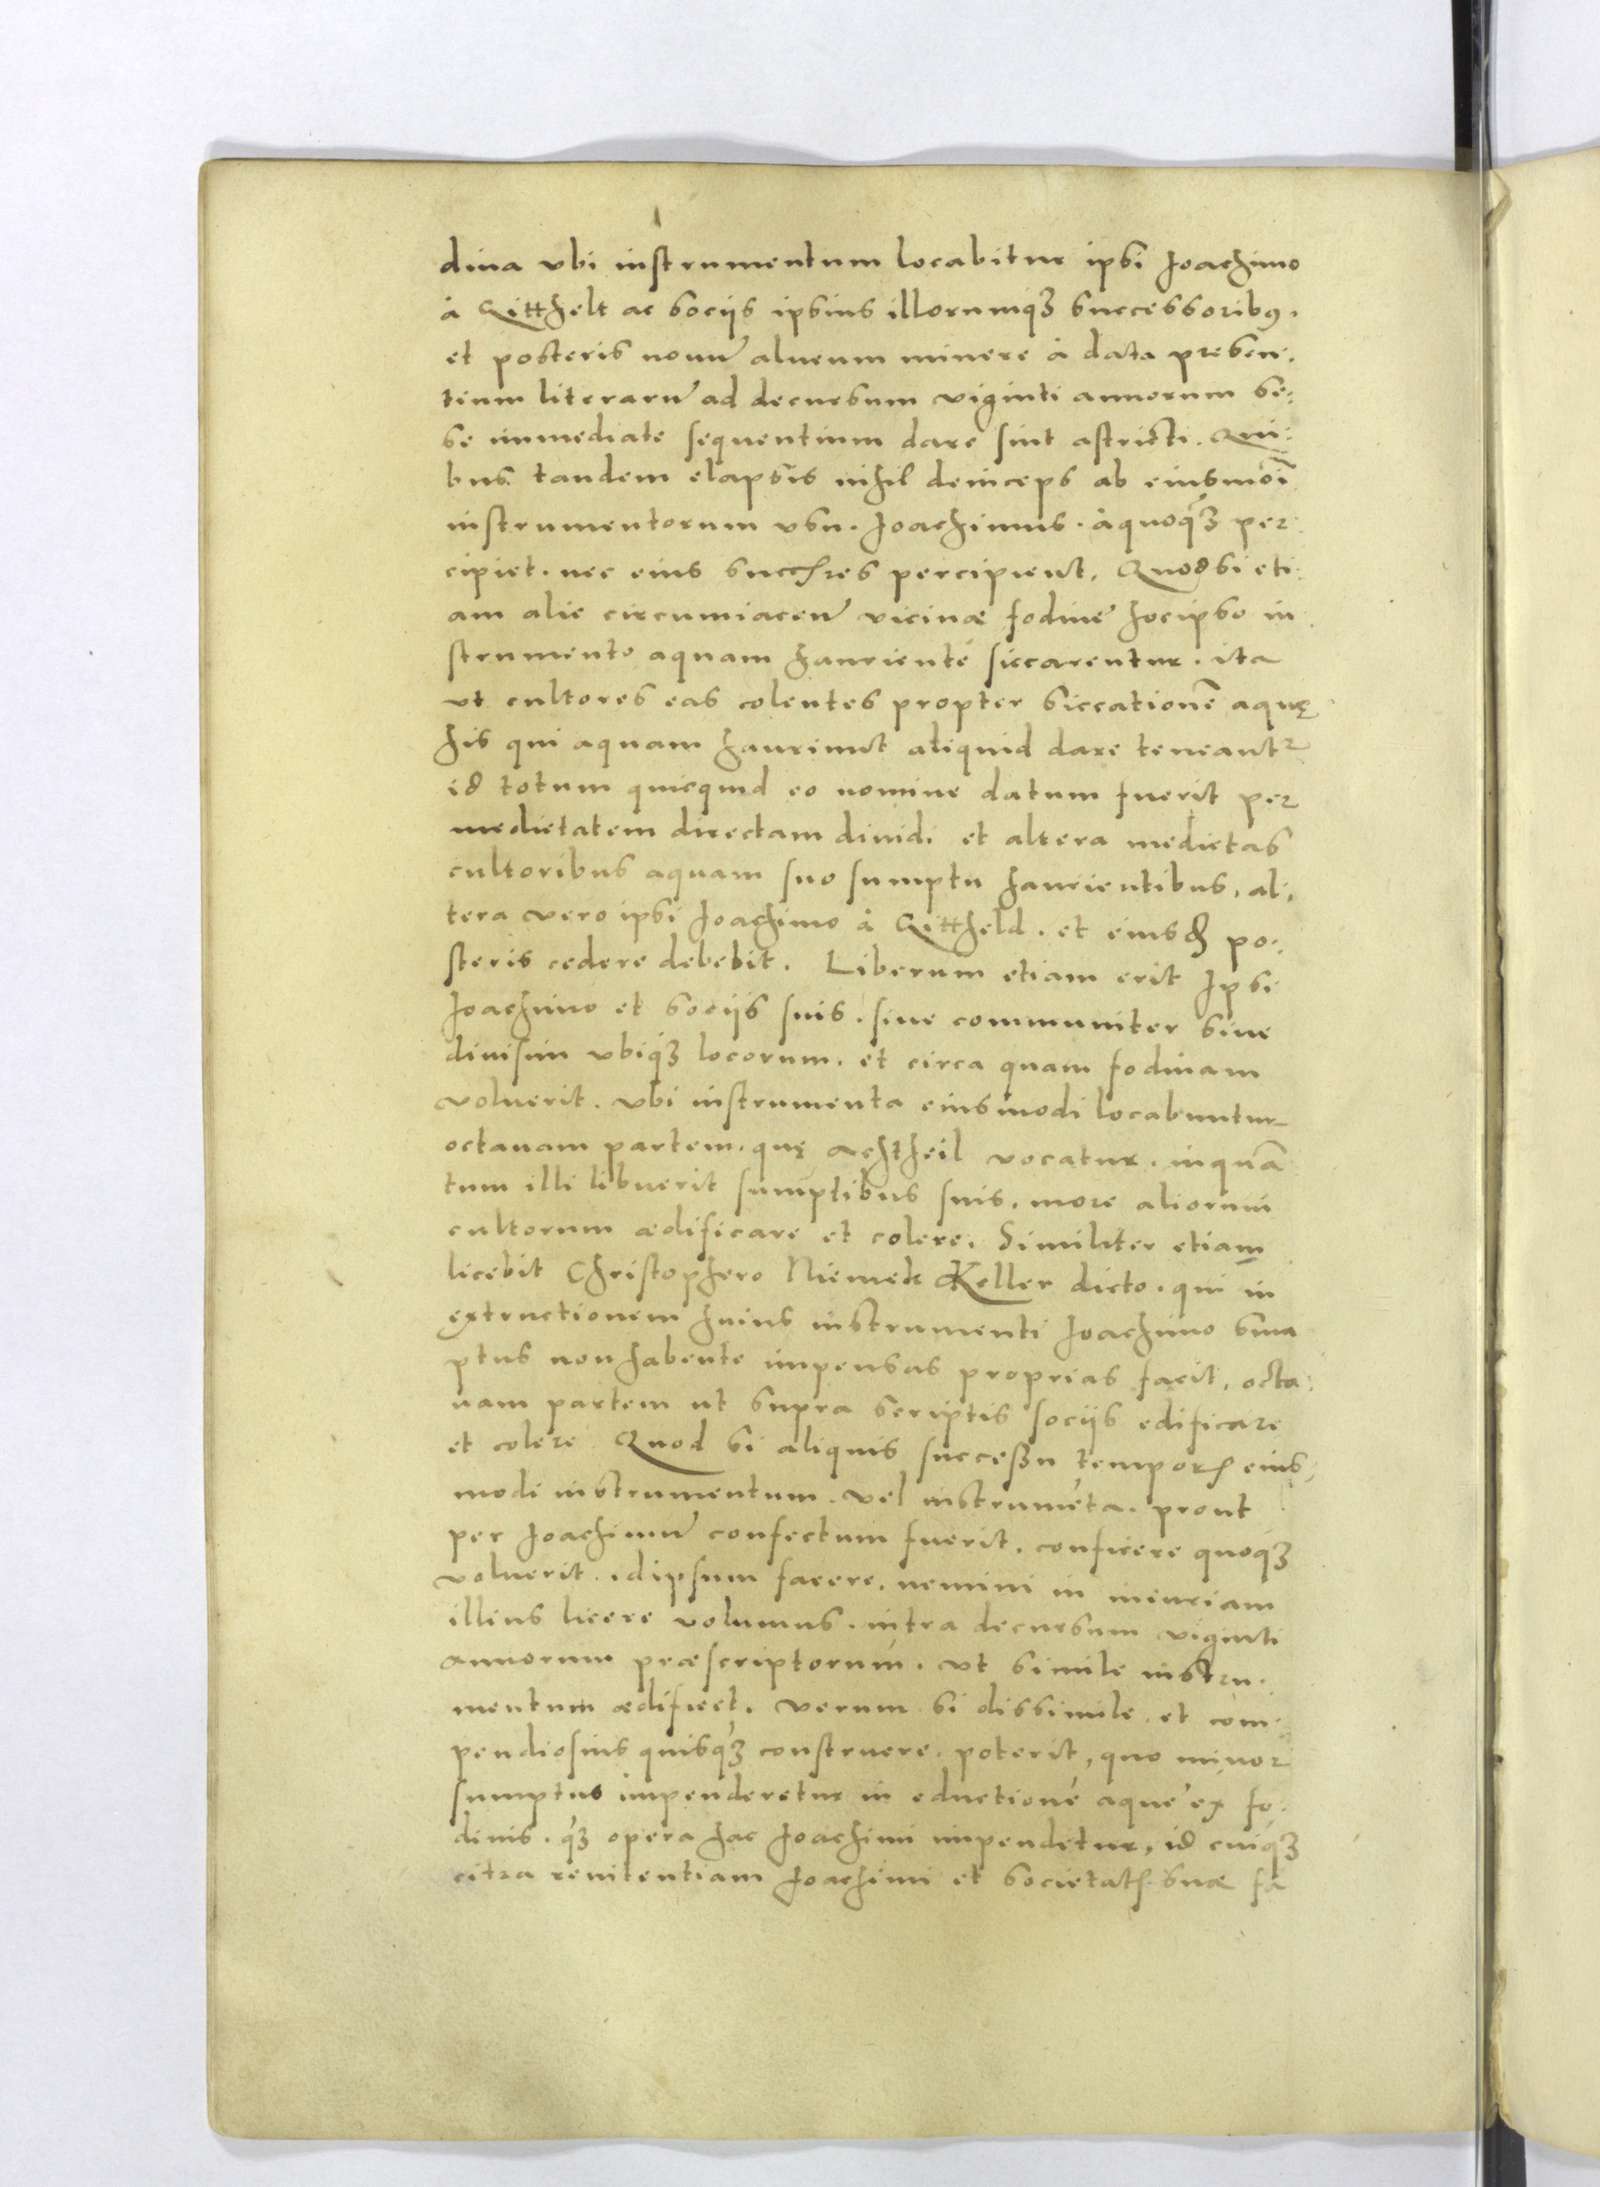 dina vbi instrumentum locabitur ipsi Joachimo
à Qittzelt ac sociis ipsius illorumqȝ successoribꝯ.
et posteris nonū alueum minere à data presen,
tium literarū ad decursum viginti annorum se,
se immediate sequentium dare sint astricti. Qui,
bus tandem elapsis nihil deinceps ab eiusmoī
instrumentorum vsu. Joachimus. aquoqȝ per
cipiet. nec eius succres percipient. Quodsi eti
am alie circumiacen vicinæ fodine hocipso in
strumento aquam hauriente siccarentur. ita
vt cultores eas colentes propter siccationē aquę
his qui aquam hauriunt aliquid dare teneantr
id totum quicquid eo nomine datum fuerit per
medietatem directam diuidi et altera medietas
cultoribus aquam suo sumptu haurientibus, al,
tera vero ipsi Joachimo à Qittzeld. et eiusd po,
steris cedere debebit. Liberum etiam erit Ipsi
Joachimo et sociis suis. siue communiter siue
diuisim vbiqȝ locorum. et circa quam fodinam
voluerit. vbi instrumenta eiusmodi locabuntur
octauam partem. quę achtheil vocatur. inquā
tum illi libuerit sumptibus suis. more aliorum
cultorum ædificare et colere. Similiter etiam
licebit Christophero Niemek Keller dicto. qui in
extructionem huius instrumenti Joachimo sum
ptus non habente impensas proprias facit, octa
uam partem ut supra scriptis sociis edificare
et colere Quod si aliquis successu temporis eius
modi instrumentum. vel instrumēta. prout
per Joachimū confectum fuerit. conficere quoqȝ
voluerit. idipsum facere. nemini in iniuriam
illius licere volumus. intra decursum viginti
annorum præscriptorum. vt simile instru,
mentum ædificet. verum si dissimile et com
pendiosius quisqȝ construere. poterit, quo minor
sumptus impenderetur in eductione aque ex fo,
dinis. qȝ opera hac Joachimi impendetur, id cuiqȝ
citra renitentiam Joachimi et societatis suæ fa